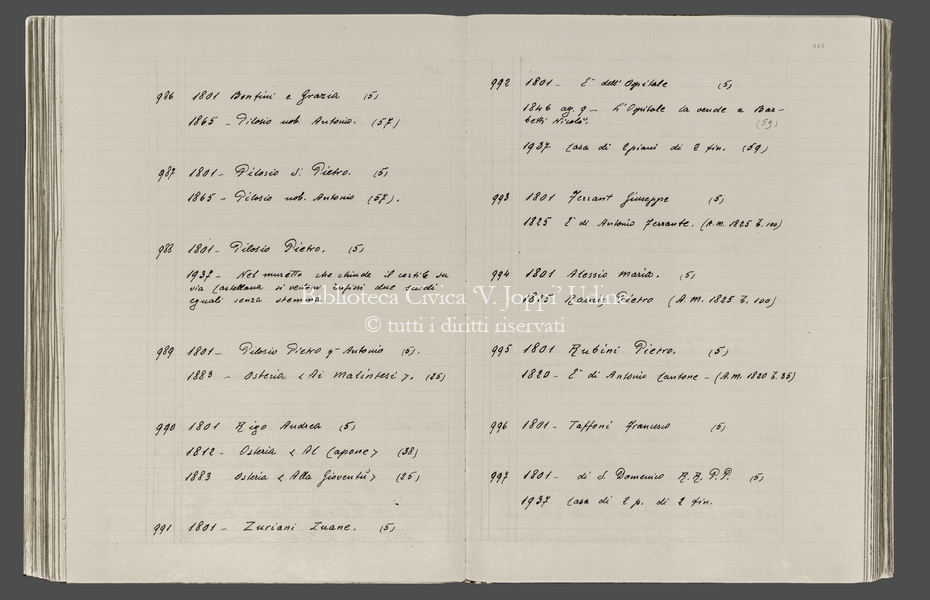 986 1801 Bonfini e Grazia (5)
1865 - Pilosio nob. Antonio. (57)
987 1801 - Pilosio S. Pietro. (5)
1865 - Pilosio nob. Antonio (57).
988 1801 - Pilosio Pietro. (5)
1937 - Nel muretto che chiude il cortile su
via Castellana si vedono infissi due scudi
eguali senza stemma.
989 1801 - Pilosio Pietro q- Antonio (5).
1883 - Osteria < Ai Malintesi >. (25)
990 1801 Rigo Andrea (5)
1812 - Osteria < Al Capone > (38)
1883 Osteria < Alla Gioventù > (25)
991 1801 - Zuriani Zuane. (5)
992 1801 - E' dell'Ospitale (5)
1846 ag. 9 - L'Ospitale la vende a Bar-
betti Nicolò. (59)
1937 Casa di 2 piani di 2 fin. (59)
993 1801 Ferrant Giuseppe (5)
1825 E' di Antonio Ferrante. (A.M. 1825 T. 100)
994 1801 Alessio Maria. (5)
1825 Pietro (A.M. 1825 T. 100)
995 1801 Rubini Pietro. (5)
1820 - E' di Antonio Cantone - (A.M. 1820 T. 35)
996 1801 - Taffoni Francesco (5)
997 1801 - di S. Domenico R.R. P.P. (5)
1937 Casa di 2 p. di 2 fin.
Biblioteca Civica 'V. Joppi' Udine
© tutti i diritti riservati